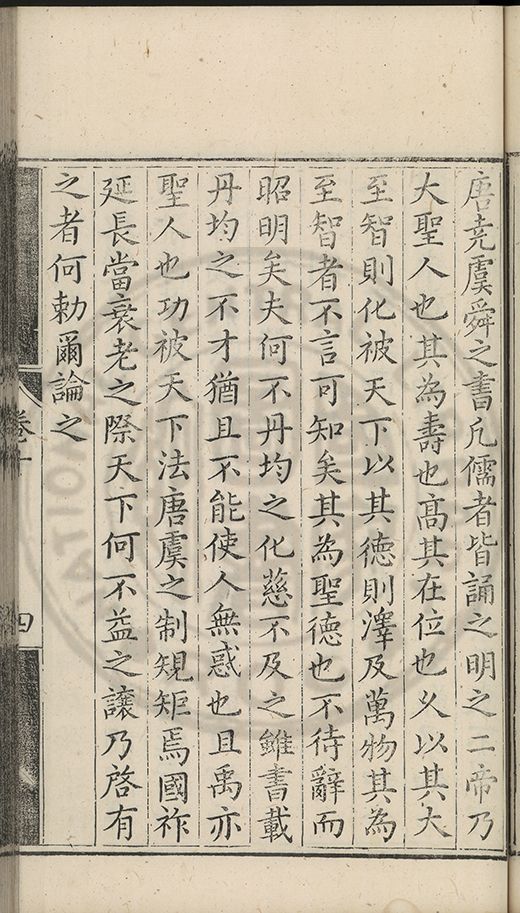 唐堯虞舜之書凡儒者皆誦之明之二帝乃
大聖人也其為壽也高其在位也乆以其大
至智則化被天下以其德則澤及萬物其為
至智者不言可知矣其為聖德也不待辭而
昭明矣夫何不丹均之化慈不及之雖書載
丹均之不才猶且不能使人無惑也且禹亦
聖人也功被天下法唐虞之制䂓矩焉國祚
延長當衰老之際天下何不益之讓乃啓有
之者何勅爾論之
卷十
四